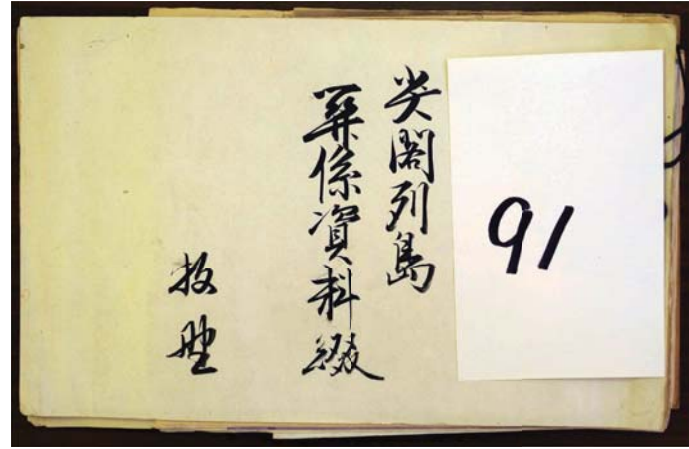 91
尖閣列島
関係資料綴
牧野